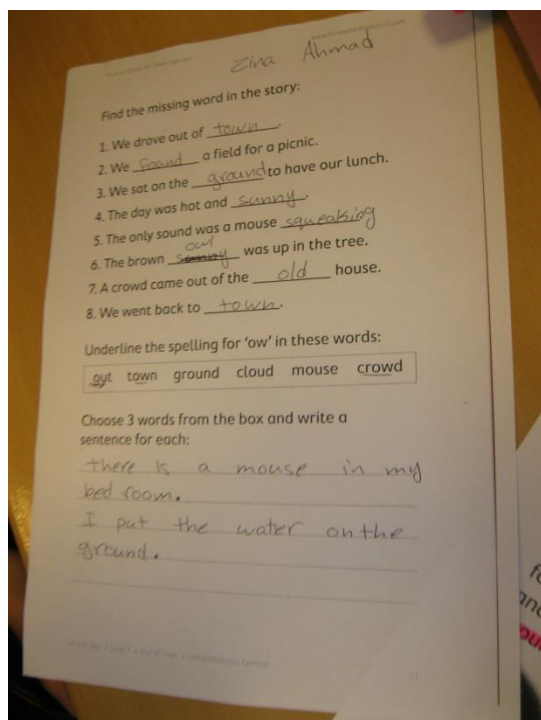 Zina Ahmad
Find the missing word in the story:
1. We drove out of town.
2. We found a field for a picnic.
3. We sat on the ground to have our lunch.
4. The day was hot and sunny.
5. The only sound was a mouse squeaking
6. The brown owl was up in the tree.
7. A crowd came out of the old house.
8. We went back to town.
Underline the spelling for 'ow' in these words:
out town ground cloud mouse crowd
Choose 3 words from the box and write a
sentence for each:
there is a mouse in my
bed room.
I put the water on the
ground.